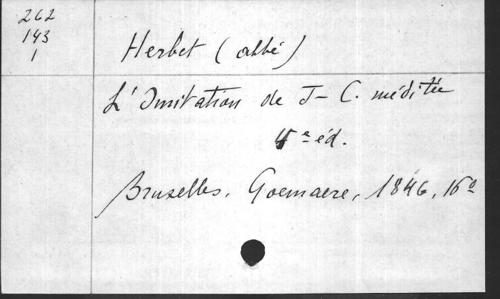 262
143
1
Herbet (abbé)
L'Imitation de J-C. méditée
4e éd.
Bruxelles, Goemaere, 1846, 16o